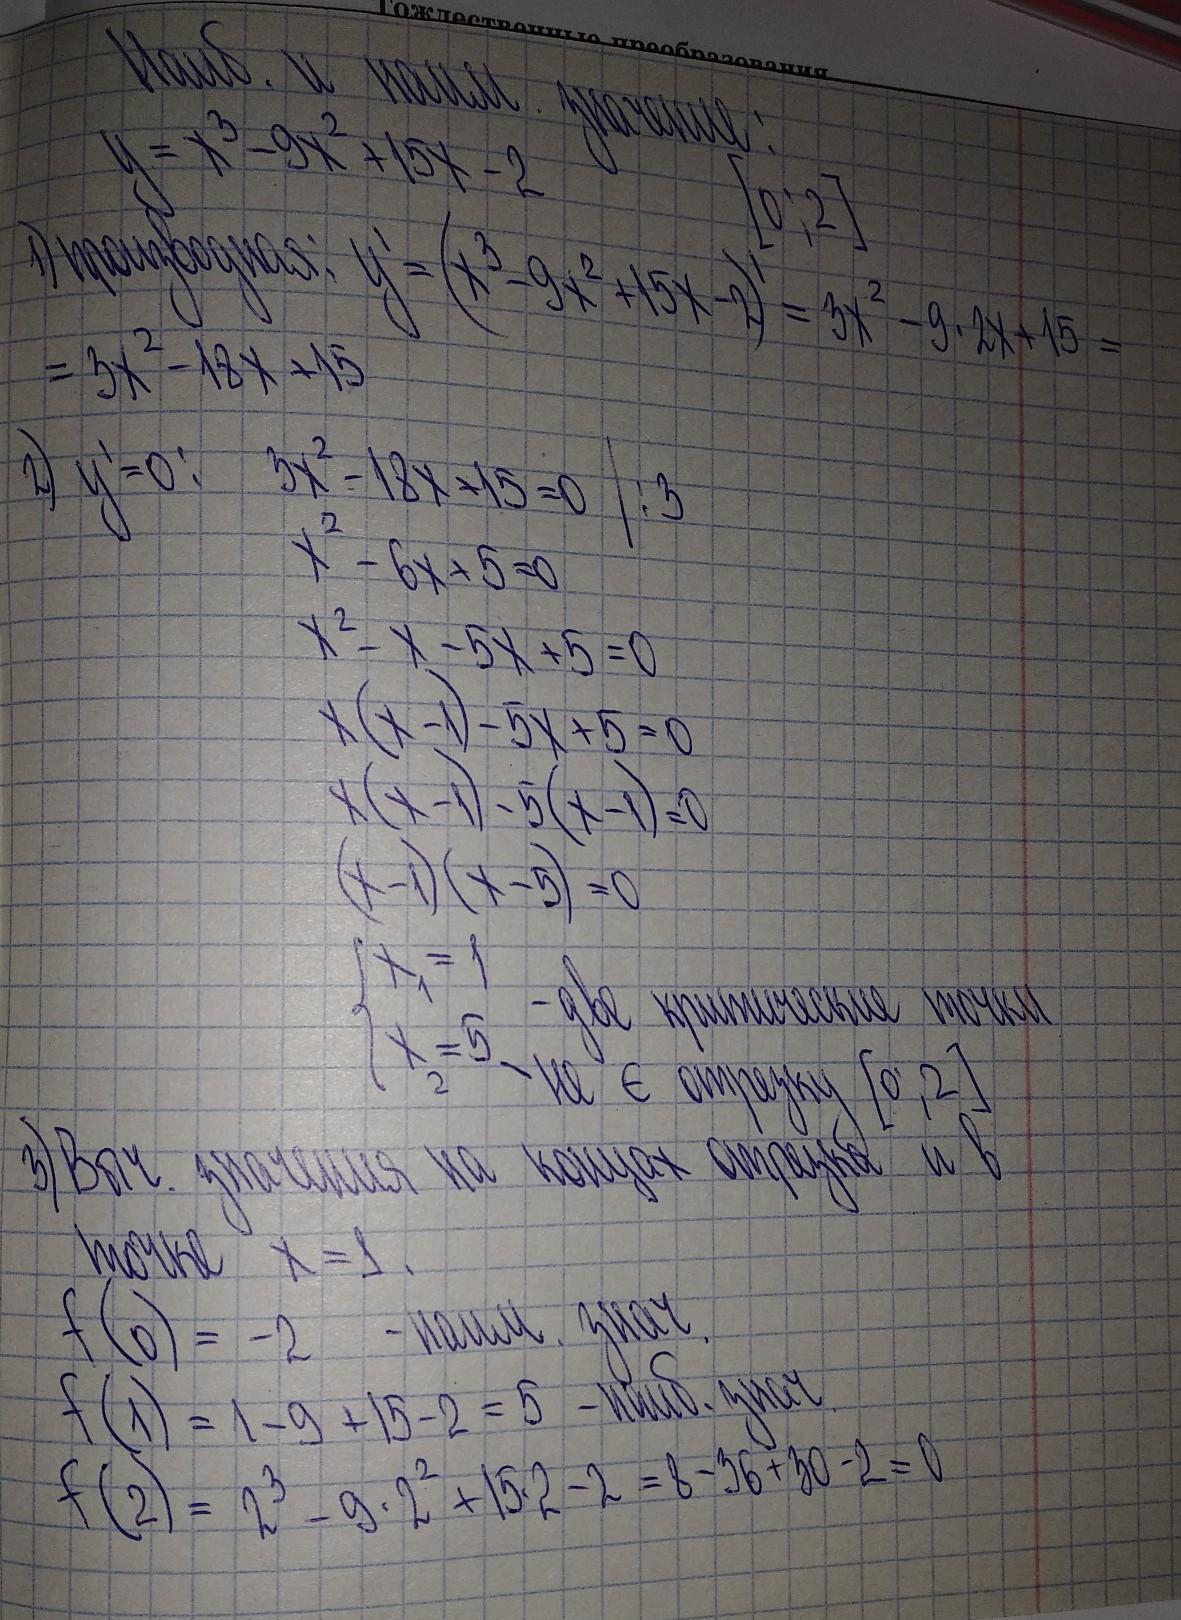 Тождественные преобразования
Наиб. и наим. значение:
y = x³ - 9x² + 15x - 2 [0; 2]
1) производная: y' = (x³ - 9x² + 15x - 2)' = 3x² - 9·2x + 15 =
= 3x² - 18x + 15
2) y' = 0: 3x² - 18x + 15 = 0 | :3
x² - 6x + 5 = 0
x² - x - 5x + 5 = 0
x(x-1) - 5x + 5 = 0
x(x-1) - 5(x-1) = 0
(x-1)(x-5) = 0
x₁ = 1 - две критические точки
x₂ = 5 - не ∈ отрезку [0; 2]
3) Выч. значения на концах отрезка и в
точке x = 1.
f(0) = -2 - наим. знач.
f(1) = 1 - 9 + 15 - 2 = 5 - наиб. знач.
f(2) = 2³ - 9·2² + 15·2 - 2 = 8 - 36 + 30 - 2 = 0